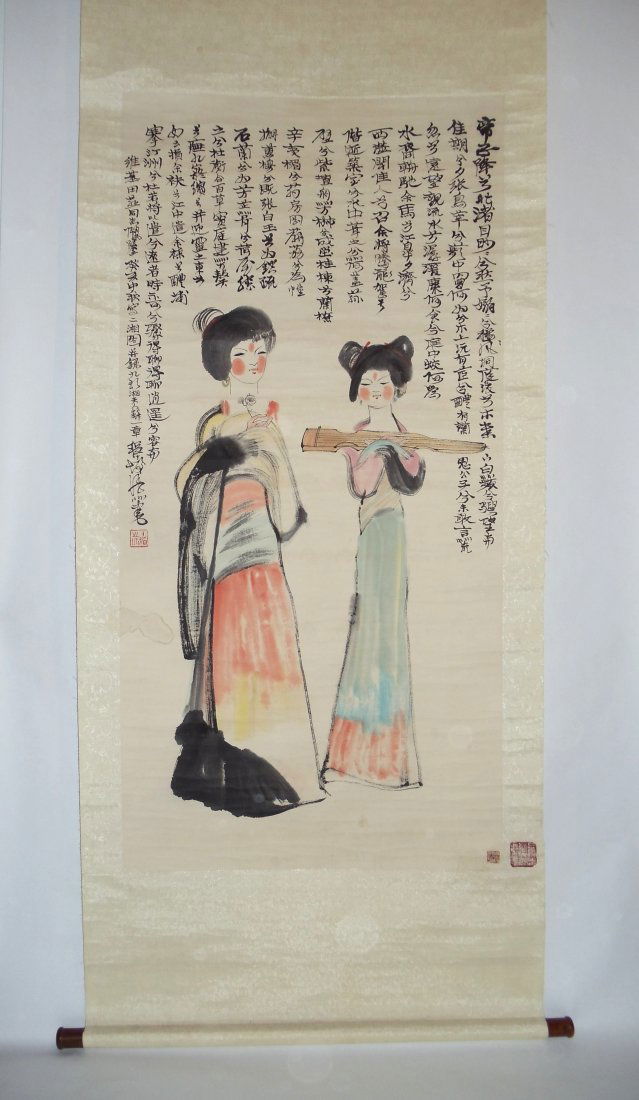 帝子降兮北渚目眇眇兮愁予嫋嫋兮秋風洞庭波兮木葉下白薠兮騁望與
佳期兮夕張鳥萃兮蘋中罾何為兮木上沅有茝兮醴有蘭思公子兮未敢言荒
忽兮遠望觀流水兮潺湲麋何食兮庭中蛟何為
水裔朝馳余馬兮江皋夕濟兮
西澨聞佳人兮召余將騰駕兮
偕逝築室兮水中葺之兮荷蓋蓀
壁兮紫壇匊芳椒兮成堂桂棟兮蘭橑
辛夷楣兮葯房罔薜荔兮為帷
擗蕙櫋兮既張白玉兮為鎮疏
石蘭兮為芳芷葺兮荷屋繚
之兮杜衡合百草兮實庭建芳馨
兮廡九嶷繽兮并迎靈之來兮
如雲捐余袂兮江中遺余褋兮醴浦
搴汀洲兮杜若將以遺兮遠者時不可兮驟得聊得聊逍遙兮容與
田莊同志 癸亥中秋寫二湘圖并錄九歌湘夫人辭一章 程十髮